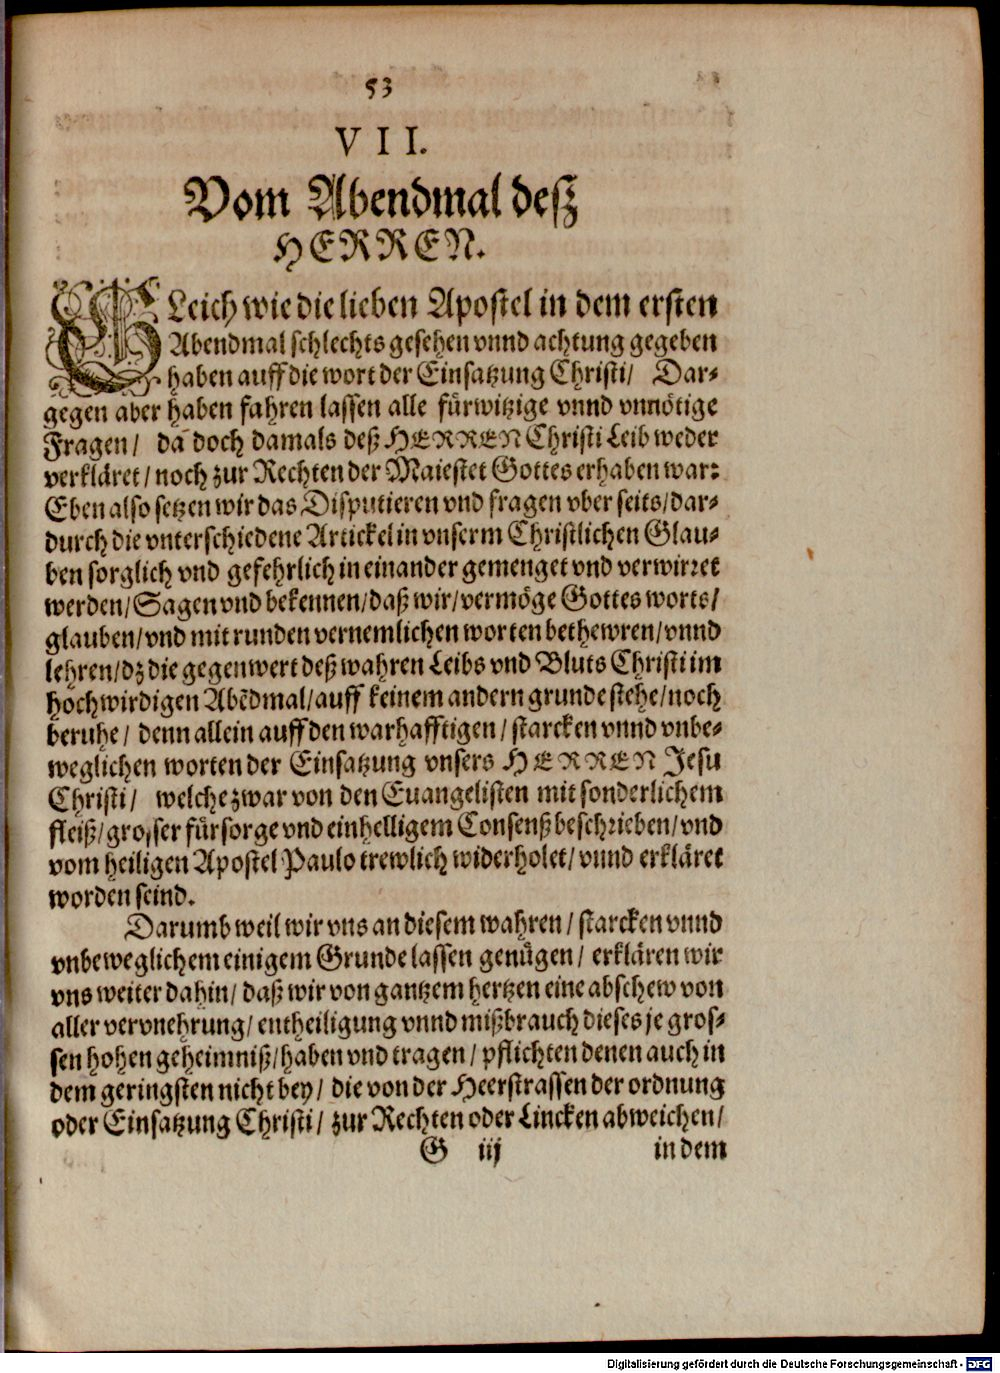 53
VII.
Vom Abendmal deß
HERREN.
GLeich wie die lieben Apostel in dem ersten
Abendmal schlechts gesehen vnnd achtung gegeben
haben auff die wort der Einsatzung Christi/ Dar-
gegen aber haben fahren lassen alle fürwitzige vnnd vnnötige
Fragen/ da doch damals deß HERREN Christi Leib weder
verkläret/ noch zur Rechten der Maiestet Gottes erhaben war:
Eben also setzen wir das Disputieren vnd fragen vber seits/ dar-
durch die vnterschiedene Artickel in vnserm Christlichen Glau-
ben sorglich vnd gefehrlich in einander gemenget vnd verwirret
werden/ Sagen vnd bekennen/ daß wir/ vermöge Gottes worts/
glauben/ vnd mit runden vernemlichen worten bethewren/ vnnd
lehren/ dz die gegenwert deß wahren Leibs vnd Bluts Christi im
hochwirdigen Abẽdmal/ auff keinem andern grunde stehe/ noch
beruhe/ denn allein auff den warhafftigen/ starcken vnnd vnbe-
weglichen worten der Einsatzung vnsers HERREN Jesu
Christi/ welche zwar von den Euangelisten mit sonderlichem
fleiß/ grosser fürsorge vnd einhelligem Consenß beschrieben/ vnd
vom heiligen Apostel Paulo trewlich widerholet/ vnnd erkläret
worden seind.
Darumb weil wir vns an diesem wahren/ starcken vnnd
vnbeweglichem einigem Grunde lassen genügen/ erklären wir
vns weiter dahin/ daß wir von gantzem hertzen eine abschew von
aller vervnehrung/ entheiligung vnnd mißbrauch dieses je gros-
sen hohen geheimniß/ haben vnd tragen/ pflichten denen auch in
dem geringsten nicht bey/ die von der Heerstrassen der ordnung
oder Einsatzung Christi/ zur Rechten oder Lincken abweichen/
G iij in dem
Digitalisierung gefördert durch die Deutsche Forschungsgemeinschaft - DFG